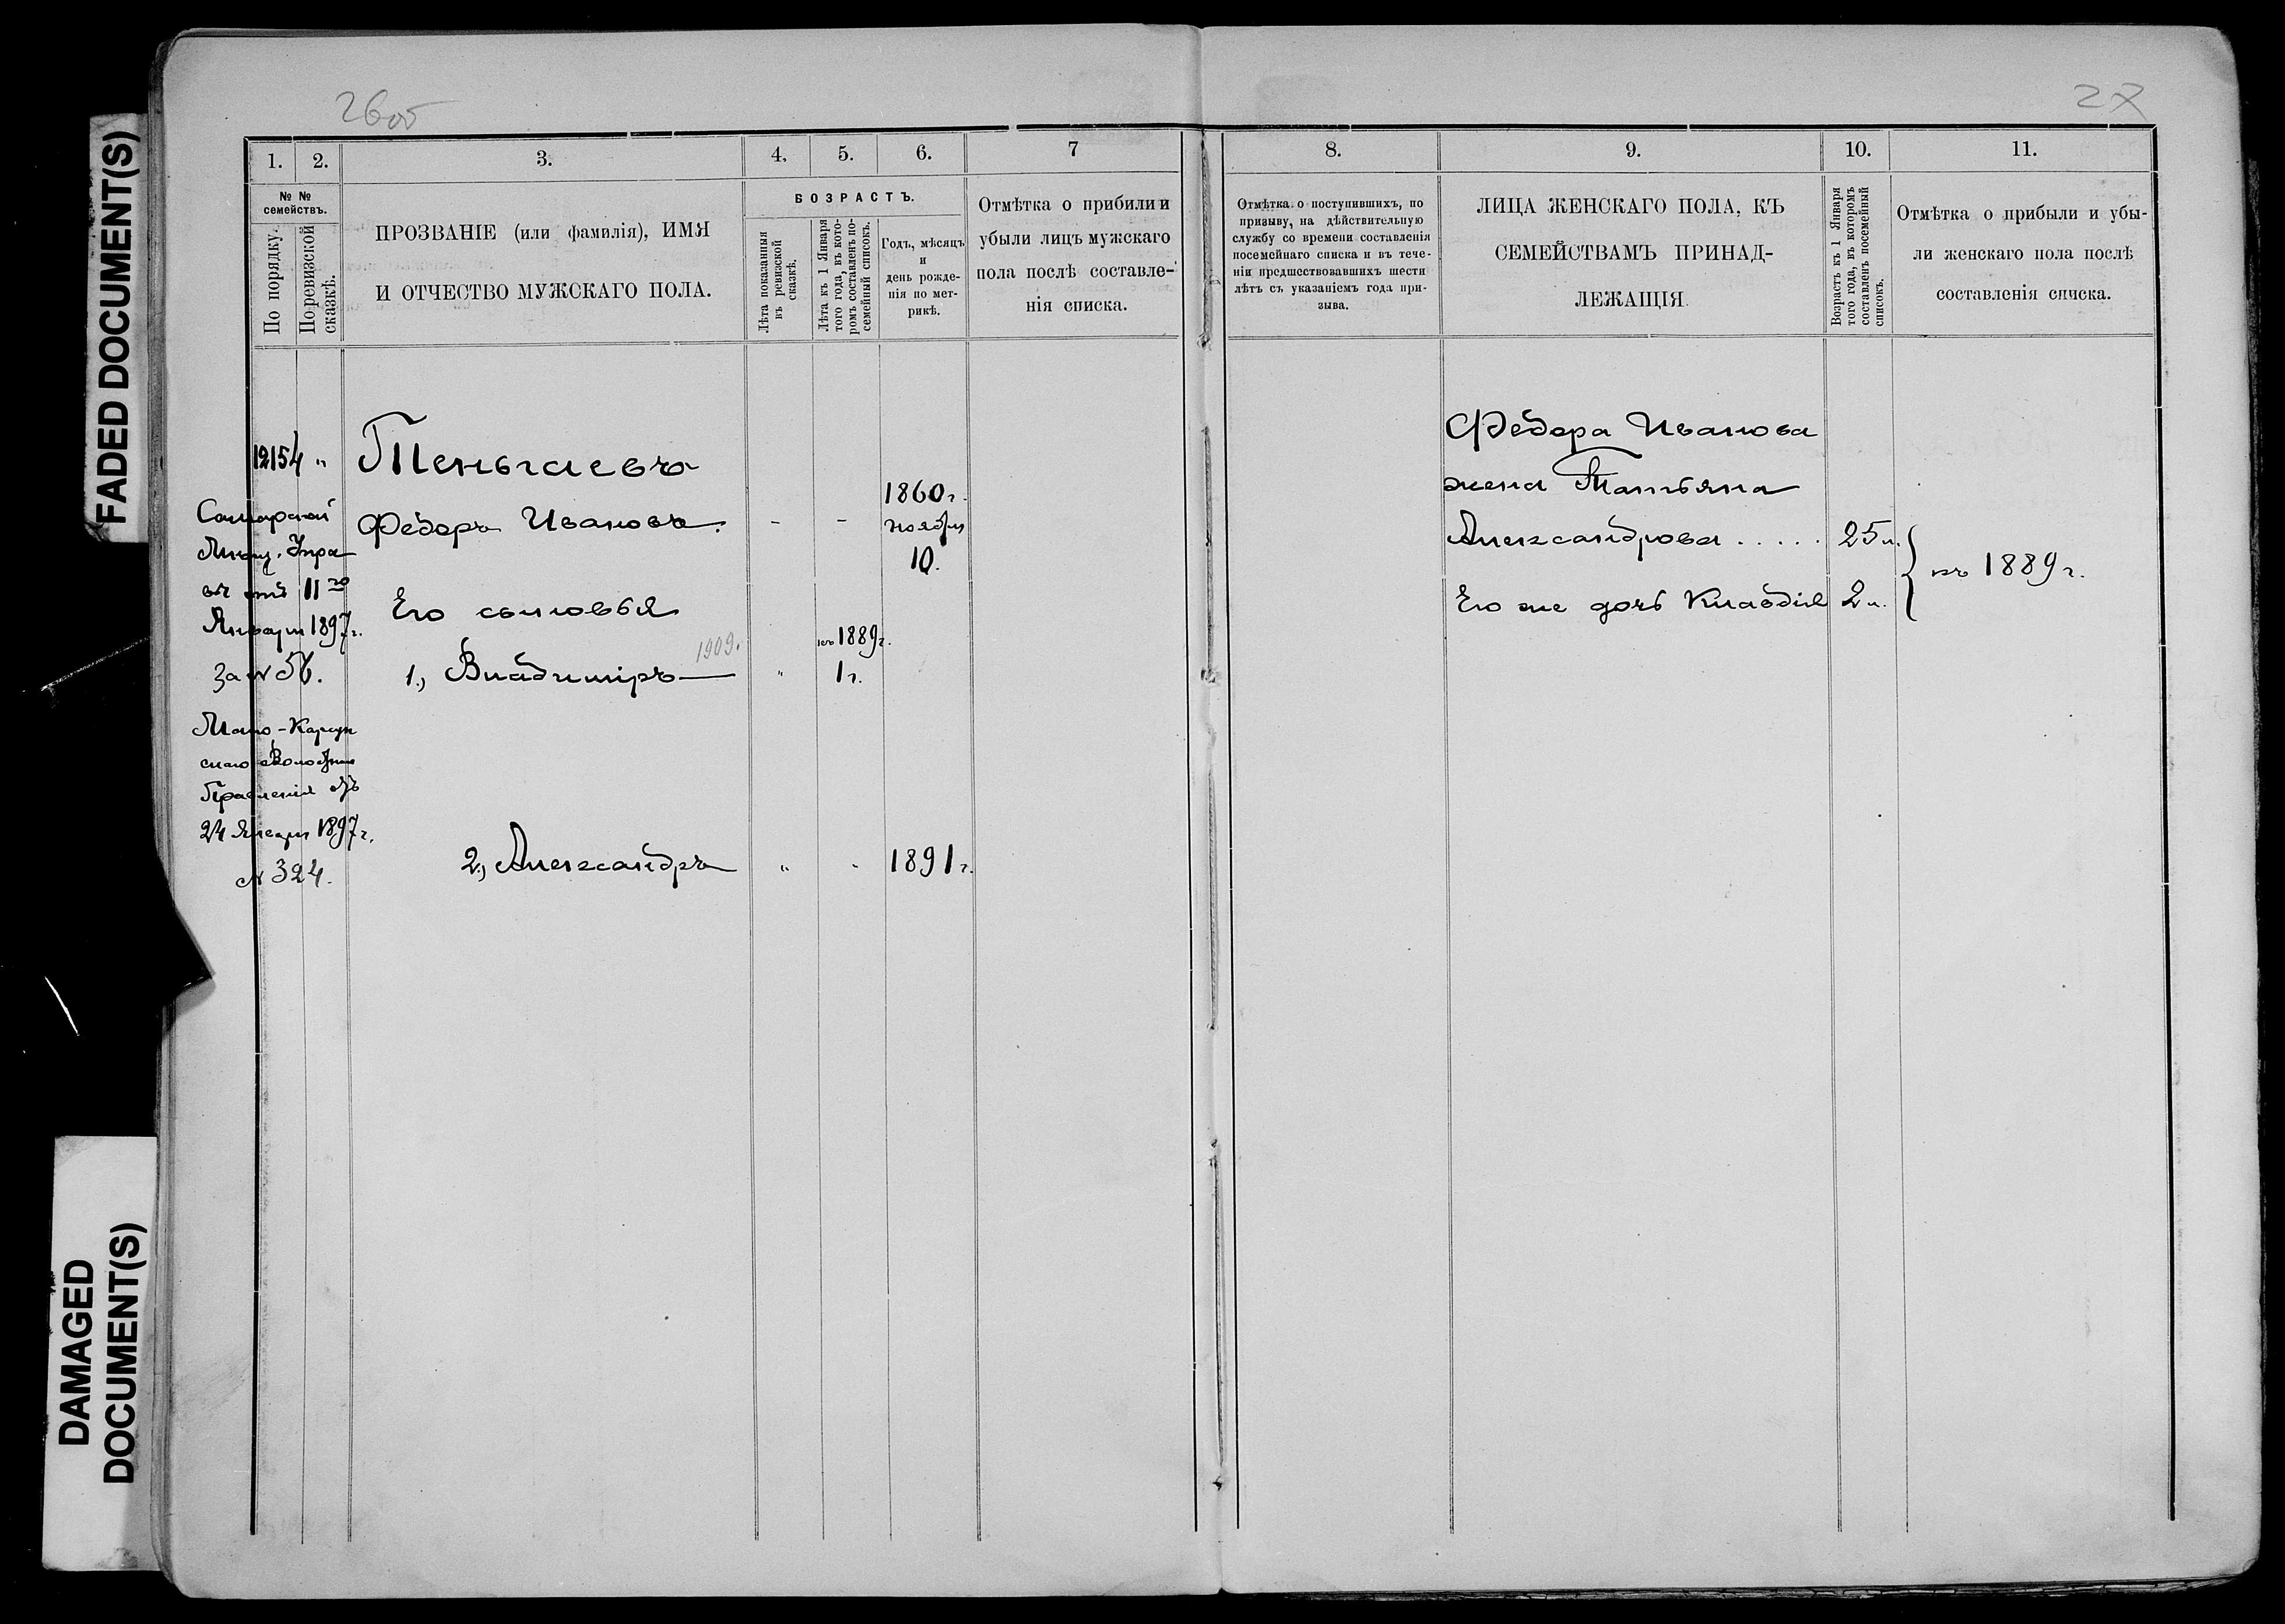 FADED DOCUMENT(S)
DAMAGED
DOCUMENT(S)
26об
1.
2.
3.
4.
5.
6.
7
№ №
семействъ.
По порядку.
По ревизской
сказкѣ.
ПРОЗВАНІЕ (или фамилія), ИМЯ
И ОТЧЕСТВО МУЖСКАГО ПОЛА.
ВОЗРАСТЪ.
Лѣта показанныя
въ ревизской
сказкѣ.
Лѣта къ 1 Января
того года, въ кото-
ромъ составленъ по-
семейный списокъ.
Годъ, мѣсяцъ
и
день рожде-
нія по мет-
рикѣ.
Отмѣтка о прибили и
убыли лицъ мужскаго
пола послѣ составле-
нія списка.
12154 "
Самарской
Мѣщ. Упра
въ отъ 11го
Января 1897 г.
за № 56.
Мало-Карсун
скаго Волостнаго
Правленія отъ
24 Января 1897 г.
№ 324.
Теньгаевъ
Федоръ Ивановъ. - -
1860 г.
ноября
10.
Его сыновья
къ 1889 г.
1909.
1., Владиміръ " 1 г.
2., Александръ " " 1891 г.
27
8.
9.
10.
11.
Отмѣтка о поступившихъ, по
призыву, на дѣйствительную
службу со времени составленія
посемейнаго списка и въ тече-
ніи предшествовавшихъ шести
лѣтъ съ указаніемъ года при-
зыва.
ЛИЦА ЖЕНСКАГО ПОЛА, КЪ
СЕМЕЙСТВАМЪ ПРИНАД-
ЛЕЖАЩІЯ
Возрастъ къ 1 Января
того года, въ которомъ
составленъ посемейный
списокъ.
Отмѣтка о прибыли и убы-
ли женскаго пола послѣ
составленія списка.
Федора Иванова
жена Татьяна
Александрова . . . . . 25 л.
Его же дочь Клавдія 2 л.
къ 1889 г.